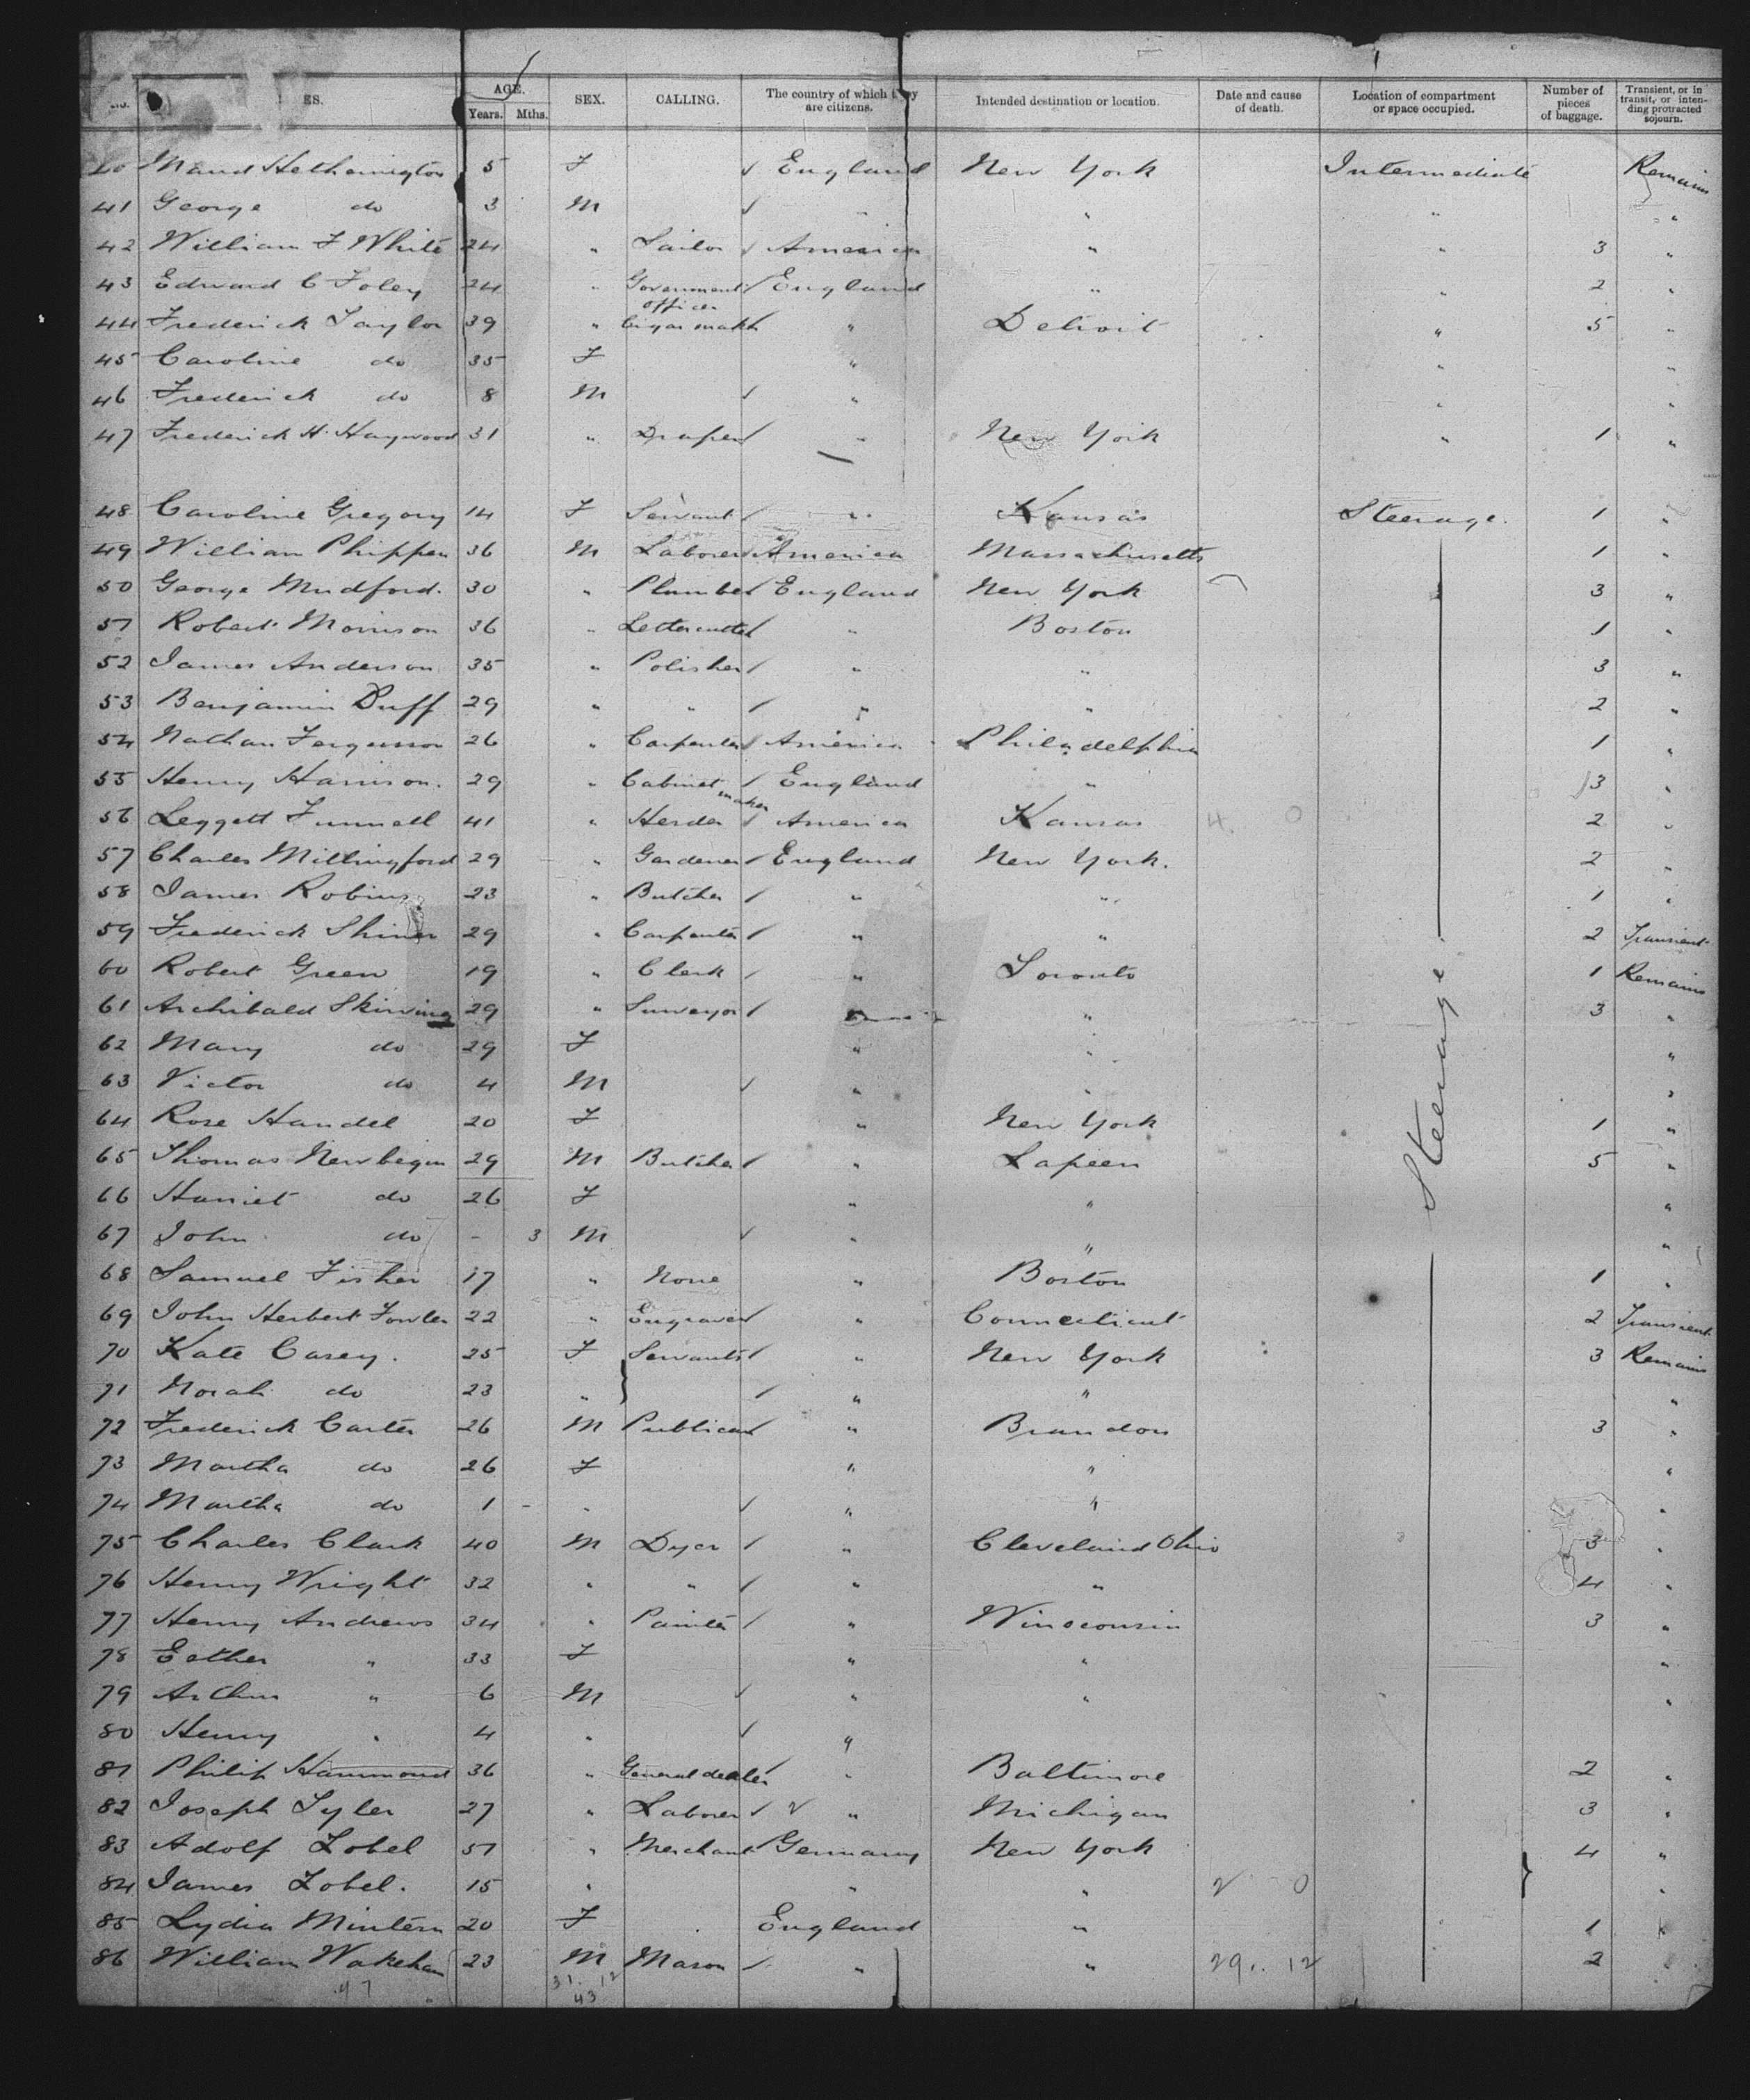 ES. AGE. SEX. CALLING. The country of which are citizens. Intended destination or location. Date and cause of death. Location of compartment or space occupied. Number of pieces of baggage. Transient, or in transit, or intending protracted sojourn.
Years. Mths.
Maud Hetherington 5 F England New York Intermediate Remains
41 George do 3 M " " " "
42 William F White 24 " Sailor America " " 3 "
43 Edward C Foley 24 " Government officer England " " 2 "
44 Frederick Taylor 39 " Cigar maker " Detroit " 5 "
45 Caroline do 35 F " " "
46 Frederick do 8 M " " "
47 Frederick H. Haywood 31 " Draper " New York " 1 "
48 Caroline Gregory 14 F Servant " Kansas Steerage. 1 "
49 William Phippen 36 M Laborer America Massachusetts 1 "
50 George Mudford. 30 " Plumber England New York 3 "
51 Robert Morrison 36 " Lettercutter " Boston 1 "
52 James Anderson 35 " Polisher " " 3 "
53 Benjamin Duff 29 " " " " 2 "
54 Nathan Fergusson 26 " Carpenter America Philadelphia 1 "
55 Henry Harrison. 29 " Cabinet maker England " 3 "
56 Leggett Funnell 41 " Herder America Kansas 4. 0 2 "
57 Charles Millingford 29 " Gardener England New York. 2 "
58 James Robins 23 " Butcher " " 1 "
59 Frederick Shiner 29 " Carpenter " " 2 Transient
60 Robert Green 19 " Clerk " Toronto 1 Remains
61 Archibald Skirving 29 " Surveyor " " 3 "
62 Mary do 29 F " " "
63 Victor do 4 M " " "
64 Rose Handel 20 F " New York 1 "
Steerage
65 Thomas Newbegin 29 M Butcher " Lapeen 5 "
66 Harriet do 26 F " " "
67 John do - 3 M " " "
68 Samuel Fisher 17 " None " Boston 1 "
69 John Herbert Fowler 22 " Engraver " Connecticut 2 Transient
70 Kate Casey. 25 F Servants " New York 3 Remains
71 Norah do 23 " " " "
72 Frederick Carter 26 M Publican " Brandon 3 "
73 Martha do 26 F " " "
74 Martha do 1 - " " " "
75 Charles Clark 40 M Dyer " Cleveland Ohio 3 "
76 Henry Wright 32 " " " " 4 "
77 Henry Andrews 34 " Painter " Winsconsin 3 "
78 Esther " 33 F " " "
79 Arthur " 6 M " " "
80 Henry " 4 " "
81 Philip Hammond 36 " General dealer " Baltimore 2 "
82 Joseph Tyler 27 " Laborer " Michigan 3 "
83 Adolf Lobel 51 " Merchant Germany New York 4 "
84 James Lobel. 15 " " " 2 0 "
85 Lydia Mintern 20 F England " 1 "
86 William Wakeham 23 M Mason " " 29. 12 2 "
47 31. 12
43